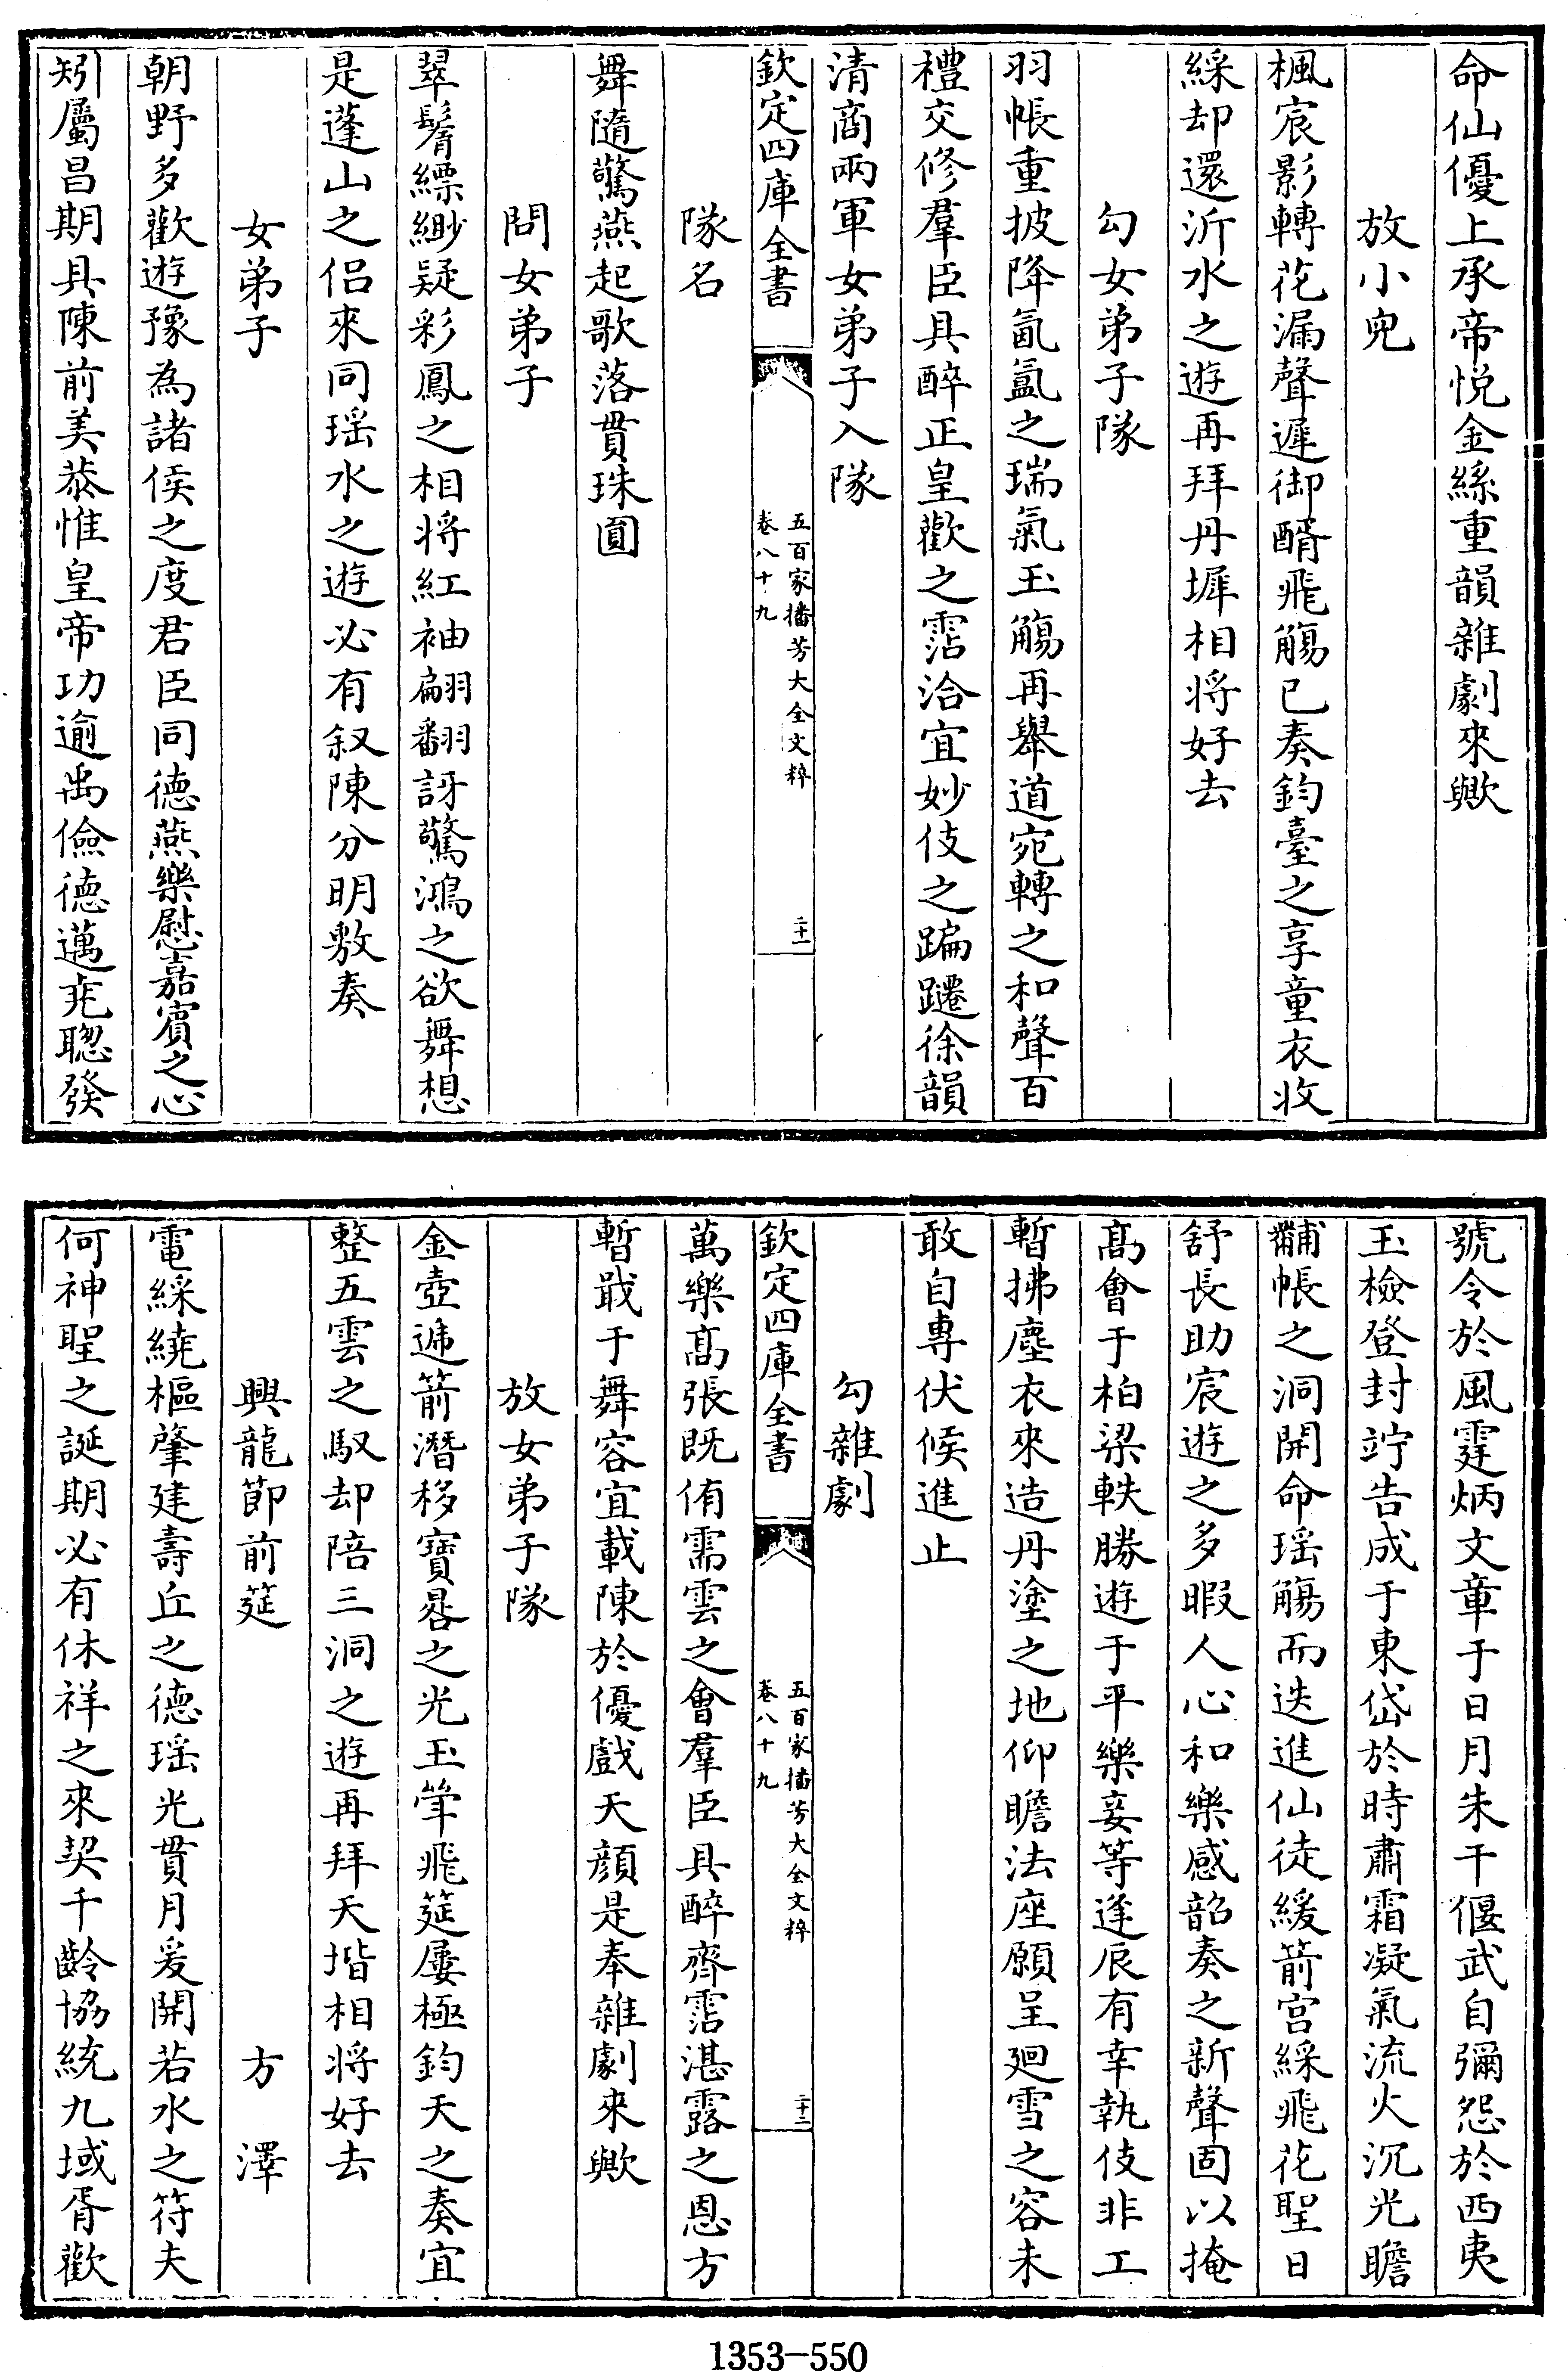 命仙優上承帝悅金絲重韻雜劇來歟
放小兒
楓宸影轉花漏聲遲御醑飛觴已奏鈞臺之享童衣收
綵却還沂水之遊再拜丹墀相將好去
勾女弟子隊
羽帳重披降氤氳之瑞氣玉觴再舉道宛轉之和聲百
禮交修羣臣具醉正皇歡之霑洽宜妙伎之蹁躚徐韻
清商兩軍女弟子入隊
欽定四庫全書
五百家播芳大全文粹
卷八十九
二十一
隊名
舞隨驚燕起歌落貫珠圓
問女弟子
翠鬢縹緲疑彩鳳之相將紅袖翩翻訝驚鴻之欲舞想
是蓬山之侣來同瑶水之遊必有叙陳分明敷奏
女弟子
朝野多歡遊豫為諸侯之度君臣同德燕樂慰嘉賓之心
矧屬昌期具陳前美恭惟皇帝功逾禹儉德邁尭聦發
號令於風霆炳文章于日月朱干偃武自彌怨於西夷
玉檢登封竚告成于東岱於時肅霜凝氣流火沉光瞻
黼帳之洞開命瑶觴而迭進仙徒緩箭宫綵飛花聖日
舒長助宸遊之多暇人心和樂感韶奏之新聲固以掩
髙會于柏梁軼勝遊于平樂妾等逢辰有幸執伎非工
暫拂塵衣來造丹塗之地仰瞻法座願呈廻雪之容未
敢自專伏候進止
勾雜劇
欽定四庫全書
五百家播芳大全文粹
卷八十九
二十二
萬樂髙張既侑需雲之會羣臣具醉齊霑湛露之恩方
暫戢于舞容宜載陳於優戲天顔是奉雜劇來歟
放女弟子隊
金壺遞箭潛移寶晷之光玉斝飛筵屢極鈞天之奏宜
整五雲之馭却陪三洞之遊再拜天堦相將好去
興龍節前筵
方澤
電綵繞樞肇建壽丘之德瑶光貫月爰開若水之符夫
何神聖之誕期必有休祥之來契千齡協統九域胥歡
1353-550